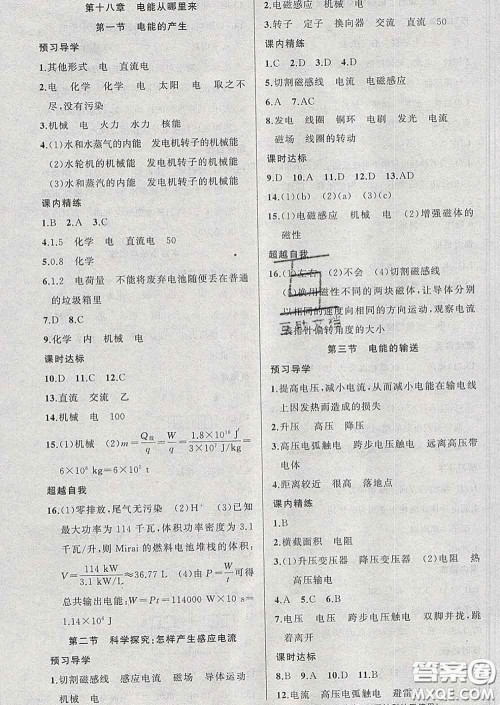 第十八章 电能从哪里来
第一节 电能的产生
预习导学
1.其他形式 电 直流电
2.电 化学 化学 电 太阳 电 取之不
尽、没有污染
3.机械 电 火力 水力 核能
4.(1)水和水蒸气的内能 发电机转子的机械能
(2)水轮机的机械能 发电机转子的机械能
(3)水和水蒸汽的内能 发电机转子的机械能
课内精练
1.B 2.A 3.C
4.1.5 化学 电 直流电 50
5.0.8 化学
6.1.2 电荷量 不能将废弃电池随便丢在普通
的垃圾箱里
7.D 8.C
9.化学 内 机械 电
课时达标
10.D 11.C 12.C
13.直流 交流 乙
14.机械 电 100
15.(1)机械 (2)m=Q放/q=W/q=1.8×10¹⁰ J/3×10⁶ J/kg=
6×10³ kg=6×10³
超越自我
16.(1)零排放,尾气无污染 (2)H⁺ (3)
最大功率为 114 千瓦,体积功率密度为 3.1
千瓦/升,则 Mirai 的燃料电池堆栈的体积:
V=114 kW/3.1 kW/L≈36.77 L (4)由 可得
总共输出电能:W=Pt=114000 W×10×
第二节 科学探究:怎样产生感应电流
预习导学
1.切割磁感线 感应电流 磁场 导体运动
机械 电
2.电磁感应 机械 电 交流
3.转子 定子 换向器 交流 直流 50
课内精练
1.C 2.B 3.D 4.C
5.切割磁感线 电流 电磁感应
6.A 7.AC
8.发电 线圈 铜环 电刷 发光 电流
磁场 线圈的转动
课时达标
9.D 10.A 11.D 12.D 13.AD
14.(1)(b) (2)(a) (3)(c)
15.(1)电磁感应 机械 电 (2)增强磁体的
磁性
超越自我
16.(1)左右 (2)不会 (4)切割磁感线
(5)换用磁性不同的两块磁体,让导体分别
以相同的速度向相同的方向运动,观察电流
表指针偏转角度的大小
第三节 电能的输送
预习导学
1.提高电压,减小电流,从而减小电能在输电线
上因发热而造成的损失
2.升压 高压 降压
3.高压电弧触电 跨步电压触电 远离高压带
电体
4.距离较近 很高 落地点
课内精练
1.B
2.横截面积 电阻
3.(1)升压变压器 降压变压器 (2)电阻 热
高压输电
7.电压 电流 跨步电压触电 双脚并拢,跳
着离开
课时达标
8.D 9.B 10.D 11.B
12.高压 电流 高压电弧触电 避雷
答案圈
MXQE.COM